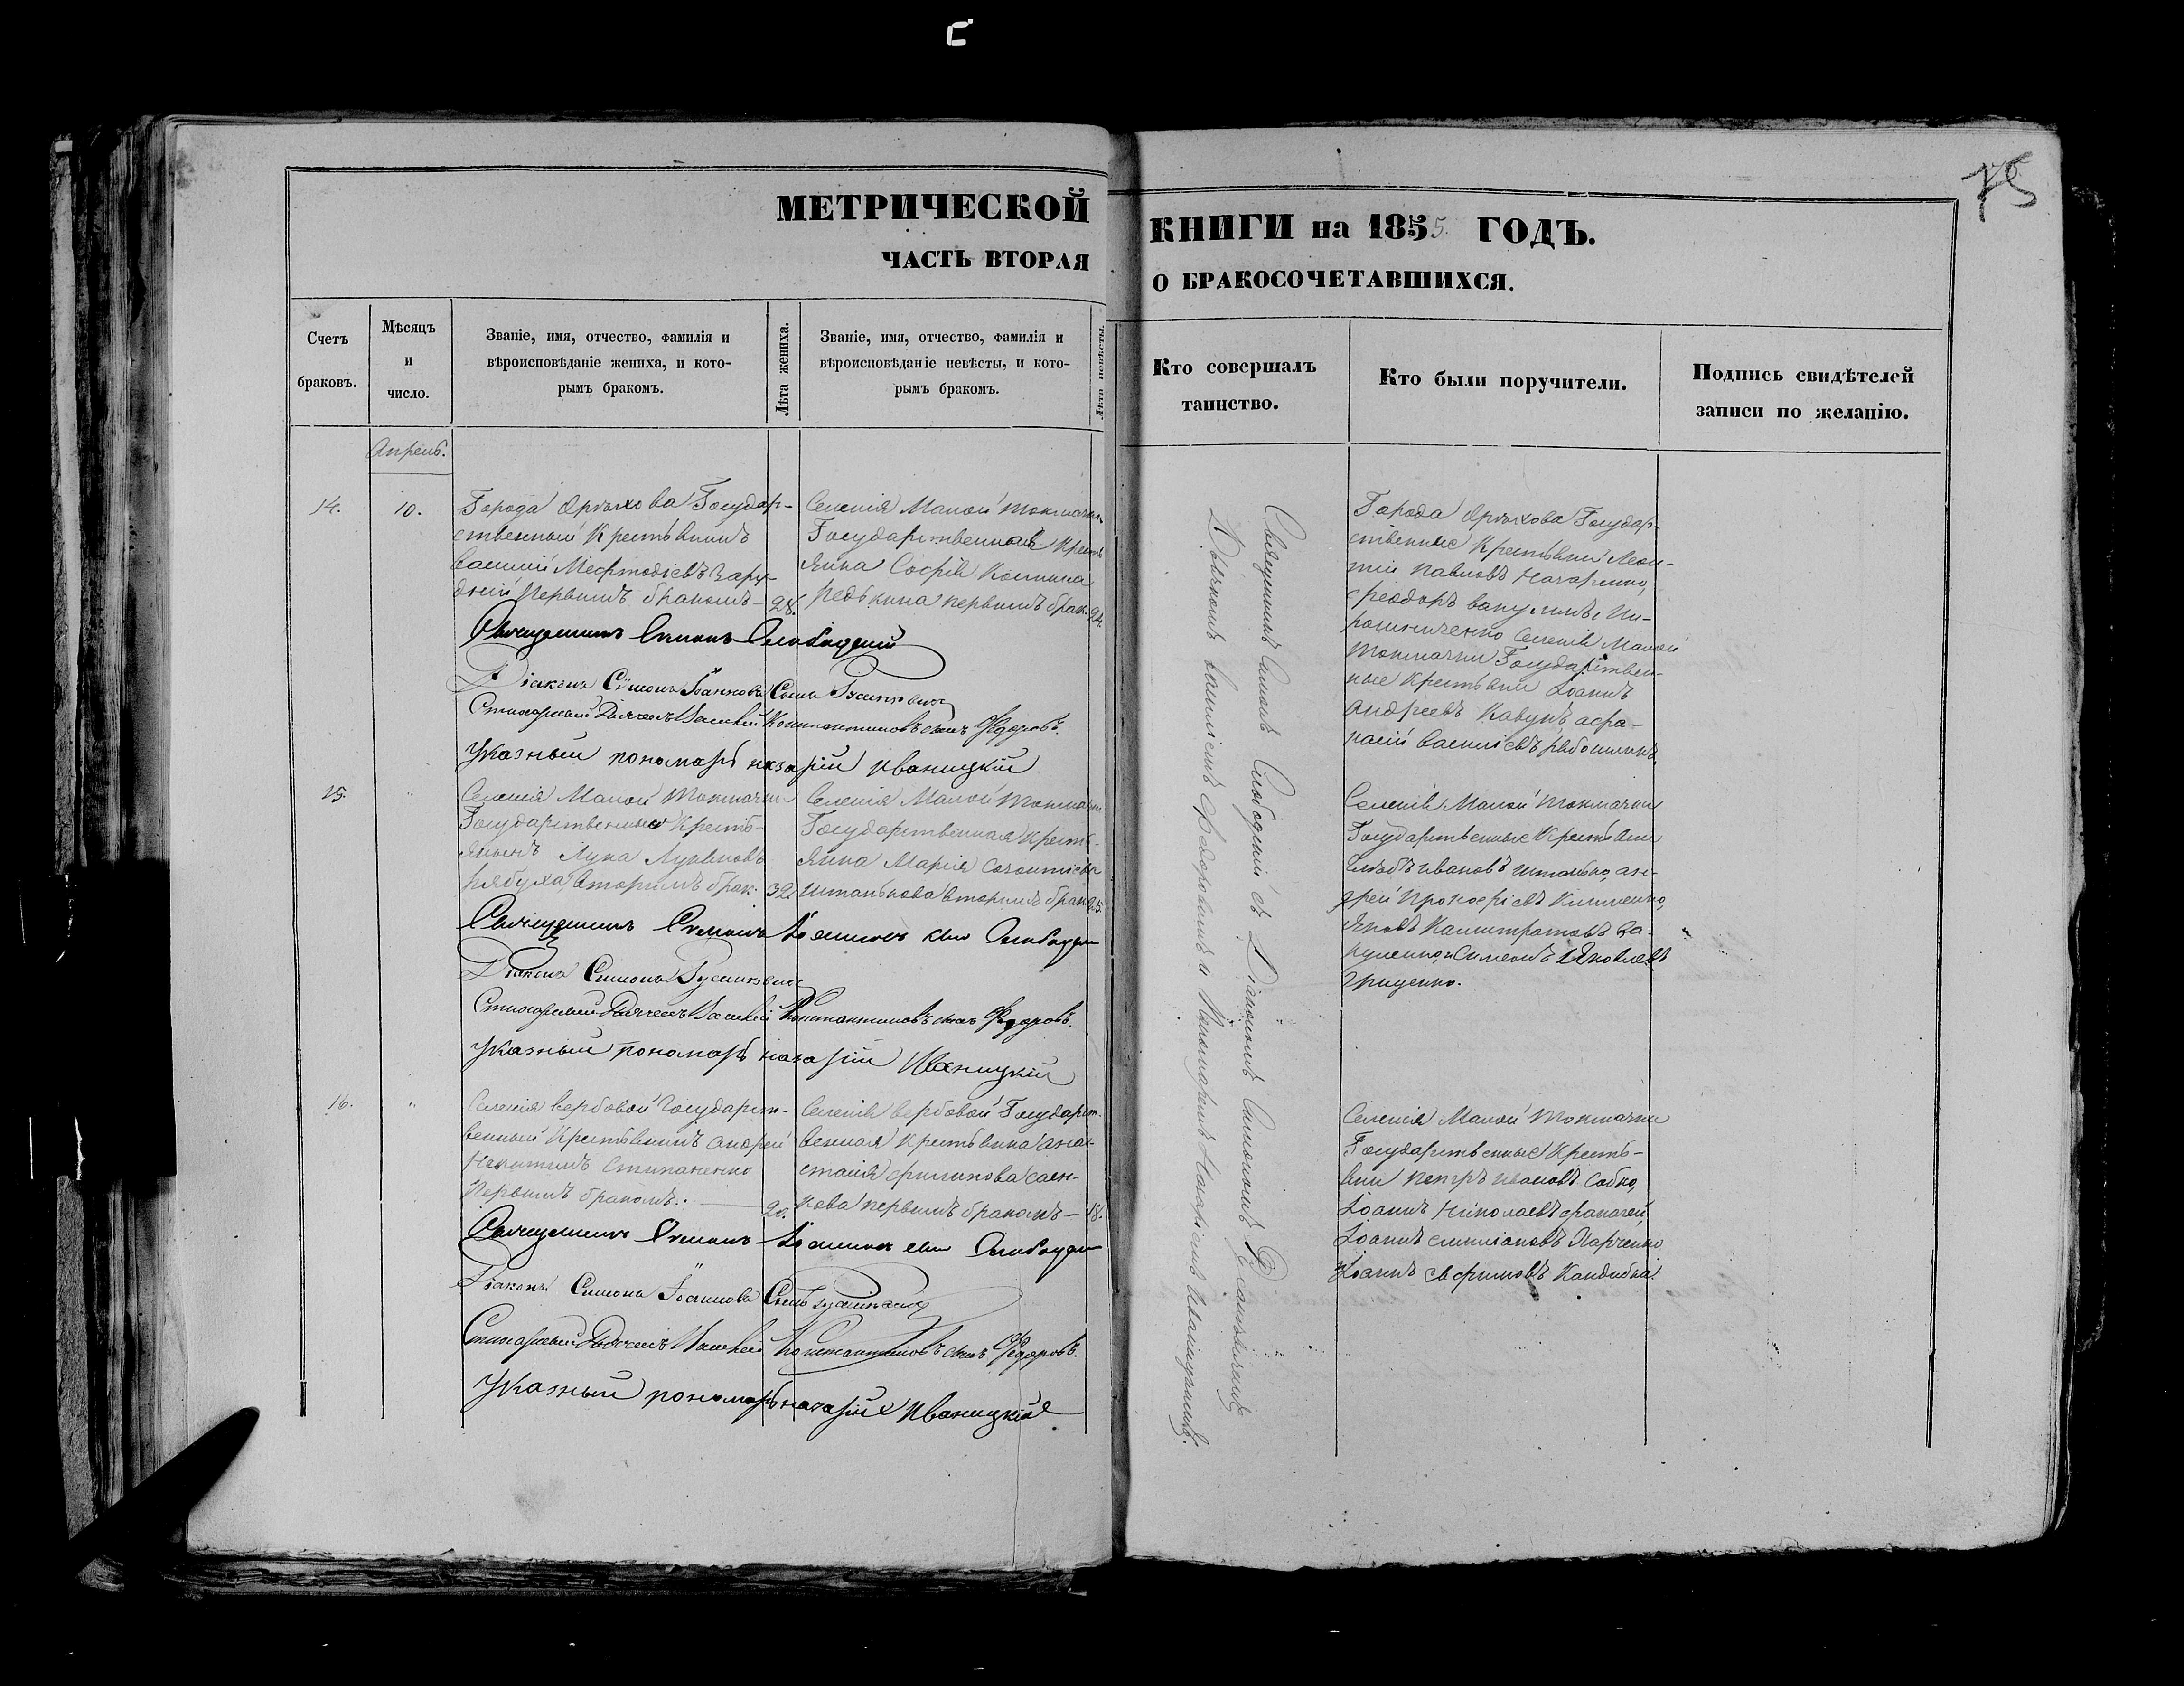 75
МЕТРИЧЕСКОЙ КНИГИ на 1855. ГОДЪ.
ЧАСТЬ ВТОРАЯ О БРАКОСОЧЕТАВШИХСЯ.
Счетъ браковъ.
Мѣсяцъ и число.
Званіе, имя, отчество, фамилія и
вѣроисповѣданіе жениха, и кото-
рымъ бракомъ.
Лѣта жениха.
Званіе, имя, отчество, фамилія и
вѣроисповѣданіе невѣсты, и кото-
рымъ бракомъ.
Лѣта невѣсты.
Кто совершалъ
таинство.
Кто были поручители.
Подпись свидѣтелей
записи по желанію.
Апрель.
14.
10.
Города Орѣхова Государ-
ственный Крестьянинъ
Василій Мефтодіевъ Зару-
дній первымъ бракомъ
28.
Селенія Малой Токмачки
Государственная Кресть
янина Софія Косьмина
Редькина первымъ брак.
Города Орѣхова Государ-
ственные Крестьяне Леон-
тій Павловъ Назаренко,
Феодоръ
Селенія Малой
Токмачки Государствен-
ные Крестьяне Іоаннъ
Андреевъ Кавунъ, Афа-
насій Василіевъ
Священникъ Симонъ Слободскій
Діаконъ Симонъ Іоанновъ Сынъ
Стихарный Дьячекъ Василій Константиновъ сынъ Федоровъ.
Указный пономарь Назарій Иваницкій
15.
"
Селенія Малой Токмачки
Государственный Кресть-
янинъ Лука Лукьяновъ
Рябуха вторымъ брак.
32.
Селенія Малой Токмачки
Государственная Кресть-
янина Марія Созонтіева
Штанькова вторымъ брак
25.
Селенія Малой Токмачки
Государственные Крестьяне
Глѣбъ Ивановъ Штанько, Ан-
дрей Прокофіевъ Клименко,
Яковъ Калистратовъ Ва-
куленко, и Симеонъ Яковлевъ
Гриценко.
Священникъ Симонъ Іоанновъ сынъ Слободскій
Діаконъ Симонъ
Стихарный Дьячекъ Василій Константиновъ сынъ Федоровъ.
Указный пономарь Назарій Иваницкій
16.
"
Селенія Вербовой Государст-
венный Крестьянинъ Андрей
Никитинъ Стипаненко
Первымъ бракомъ.
20.
Селенія Вербовой Государст-
венная Крестьянка Ана-
стасія Филипова Саен-
кова первымъ бракомъ
18.
Селенія Малой Токмачки
Государственные Кресть-
яне Петръ Ивановъ Собко,
Іоаннъ Николаевъ
Іоаннъ Емиліановъ Харченко
Іоаннъ Евфимовъ Кандиба.
Священникъ Симонъ Іоанновъ сынъ Слободскій
Діаконъ Симонъ Іоанновъ Сынъ
Стихарный Дьячекъ Василій Константиновъ сынъ Федоровъ.
Указный пономарь Назарій Иваницкій
Священникъ Симонъ Слободскій съ Діакономъ Симономъ
Дьячкомъ Василіемъ Федоровымъ и Пономаремъ Назаріемъ Иваницкимъ.